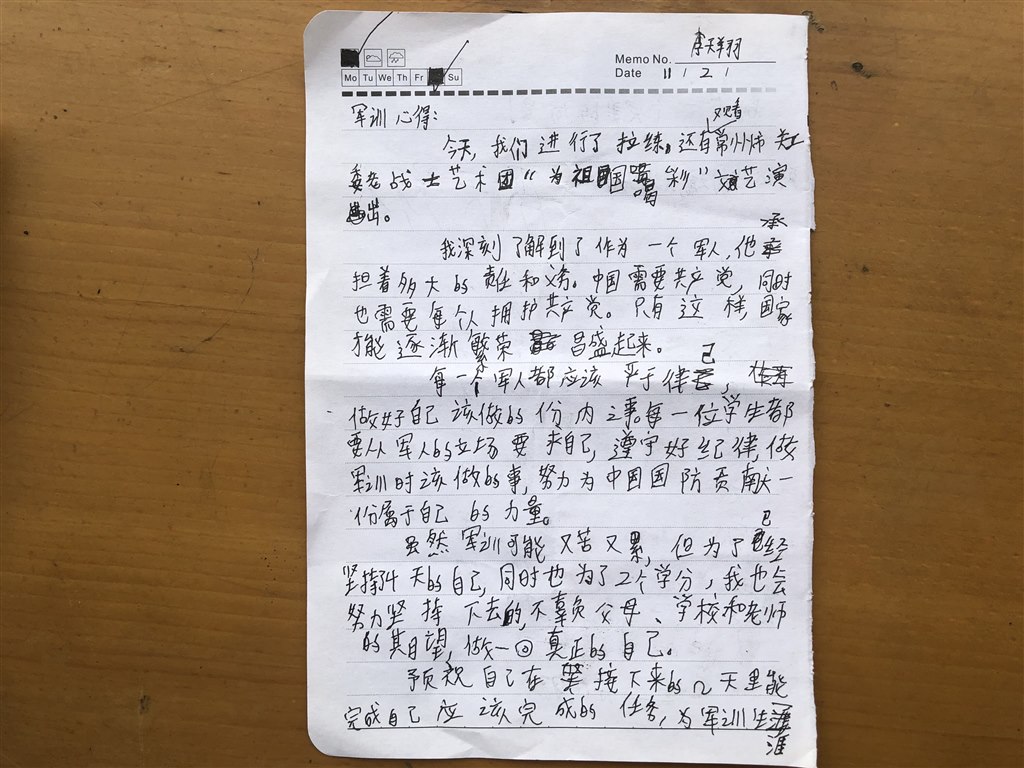 Memo No.
Mo Tu We Th Fr Su
Date 11 / 2 /
军训心得:
观看
今天,我们进行了拉练。还有常州市关工
委老战士艺术团“为祖国喝彩”文艺演
出。
承
我深刻了解到了作为一个军人,他
担着多大的责任和义务。中国需要共产党,同时
也需要每个人拥护共产党。只有这样,国家
才能逐渐繁荣昌盛起来。
己
每一个军人都应该严于律,
做好自己该做的份内之事。每一位学生都
要从军人的立场要求自己,遵守好纪律,做
军训时该做的事,努力为中国国防贡献一
份属于自己的力量。
已
虽然军训可能又苦又累,但为了经
坚持了4天的自己,同时也为了2个学分,我也会
努力坚持下去的,不辜负父母、学校和老师
的期望,做一回真正的自己。
预祝自己在接下来的几天里能
完成自己应该完成的任务,为军训生
涯